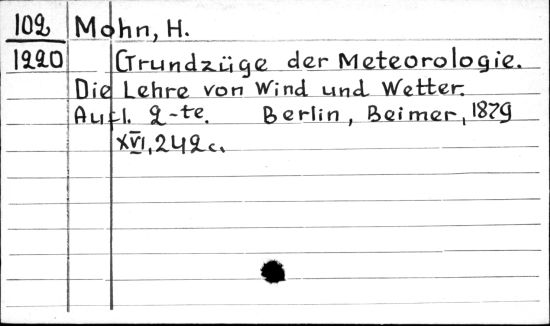 102 Mohn, H.
1220 Grundzüge der Meteorologie.
Die Lehre von Wind und Wetter.
Aufl. 2-te. Berlin, Beimer, 1879
XVI, 242 c.